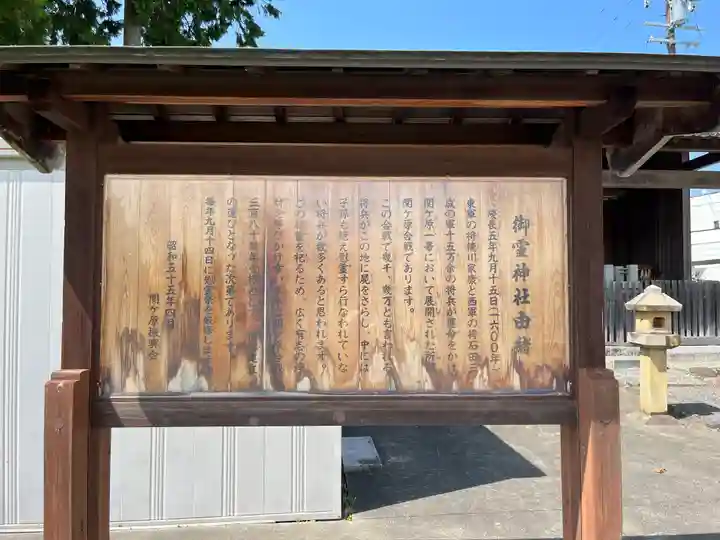 御霊神社由緒
慶長五年九月十五日（一六〇〇年）
東軍の将徳川家康と西軍の将石田三
成の軍十五万余の将兵が運命をかけ
関ケ原一帯において展開された所
関ケ原合戦であります。
この合戦で幾千、幾万とも言われる
将兵がこの地に屍をさらし、中には
子孫も絶え慰霊すら行なわれていな
い将兵が数多くあると思われます。
この を祀るため、広く有志の
三百八十
の運びとなった次第であります。
毎年九月十四日に慰霊祭を
昭和五十五年四月
関ケ原振興会